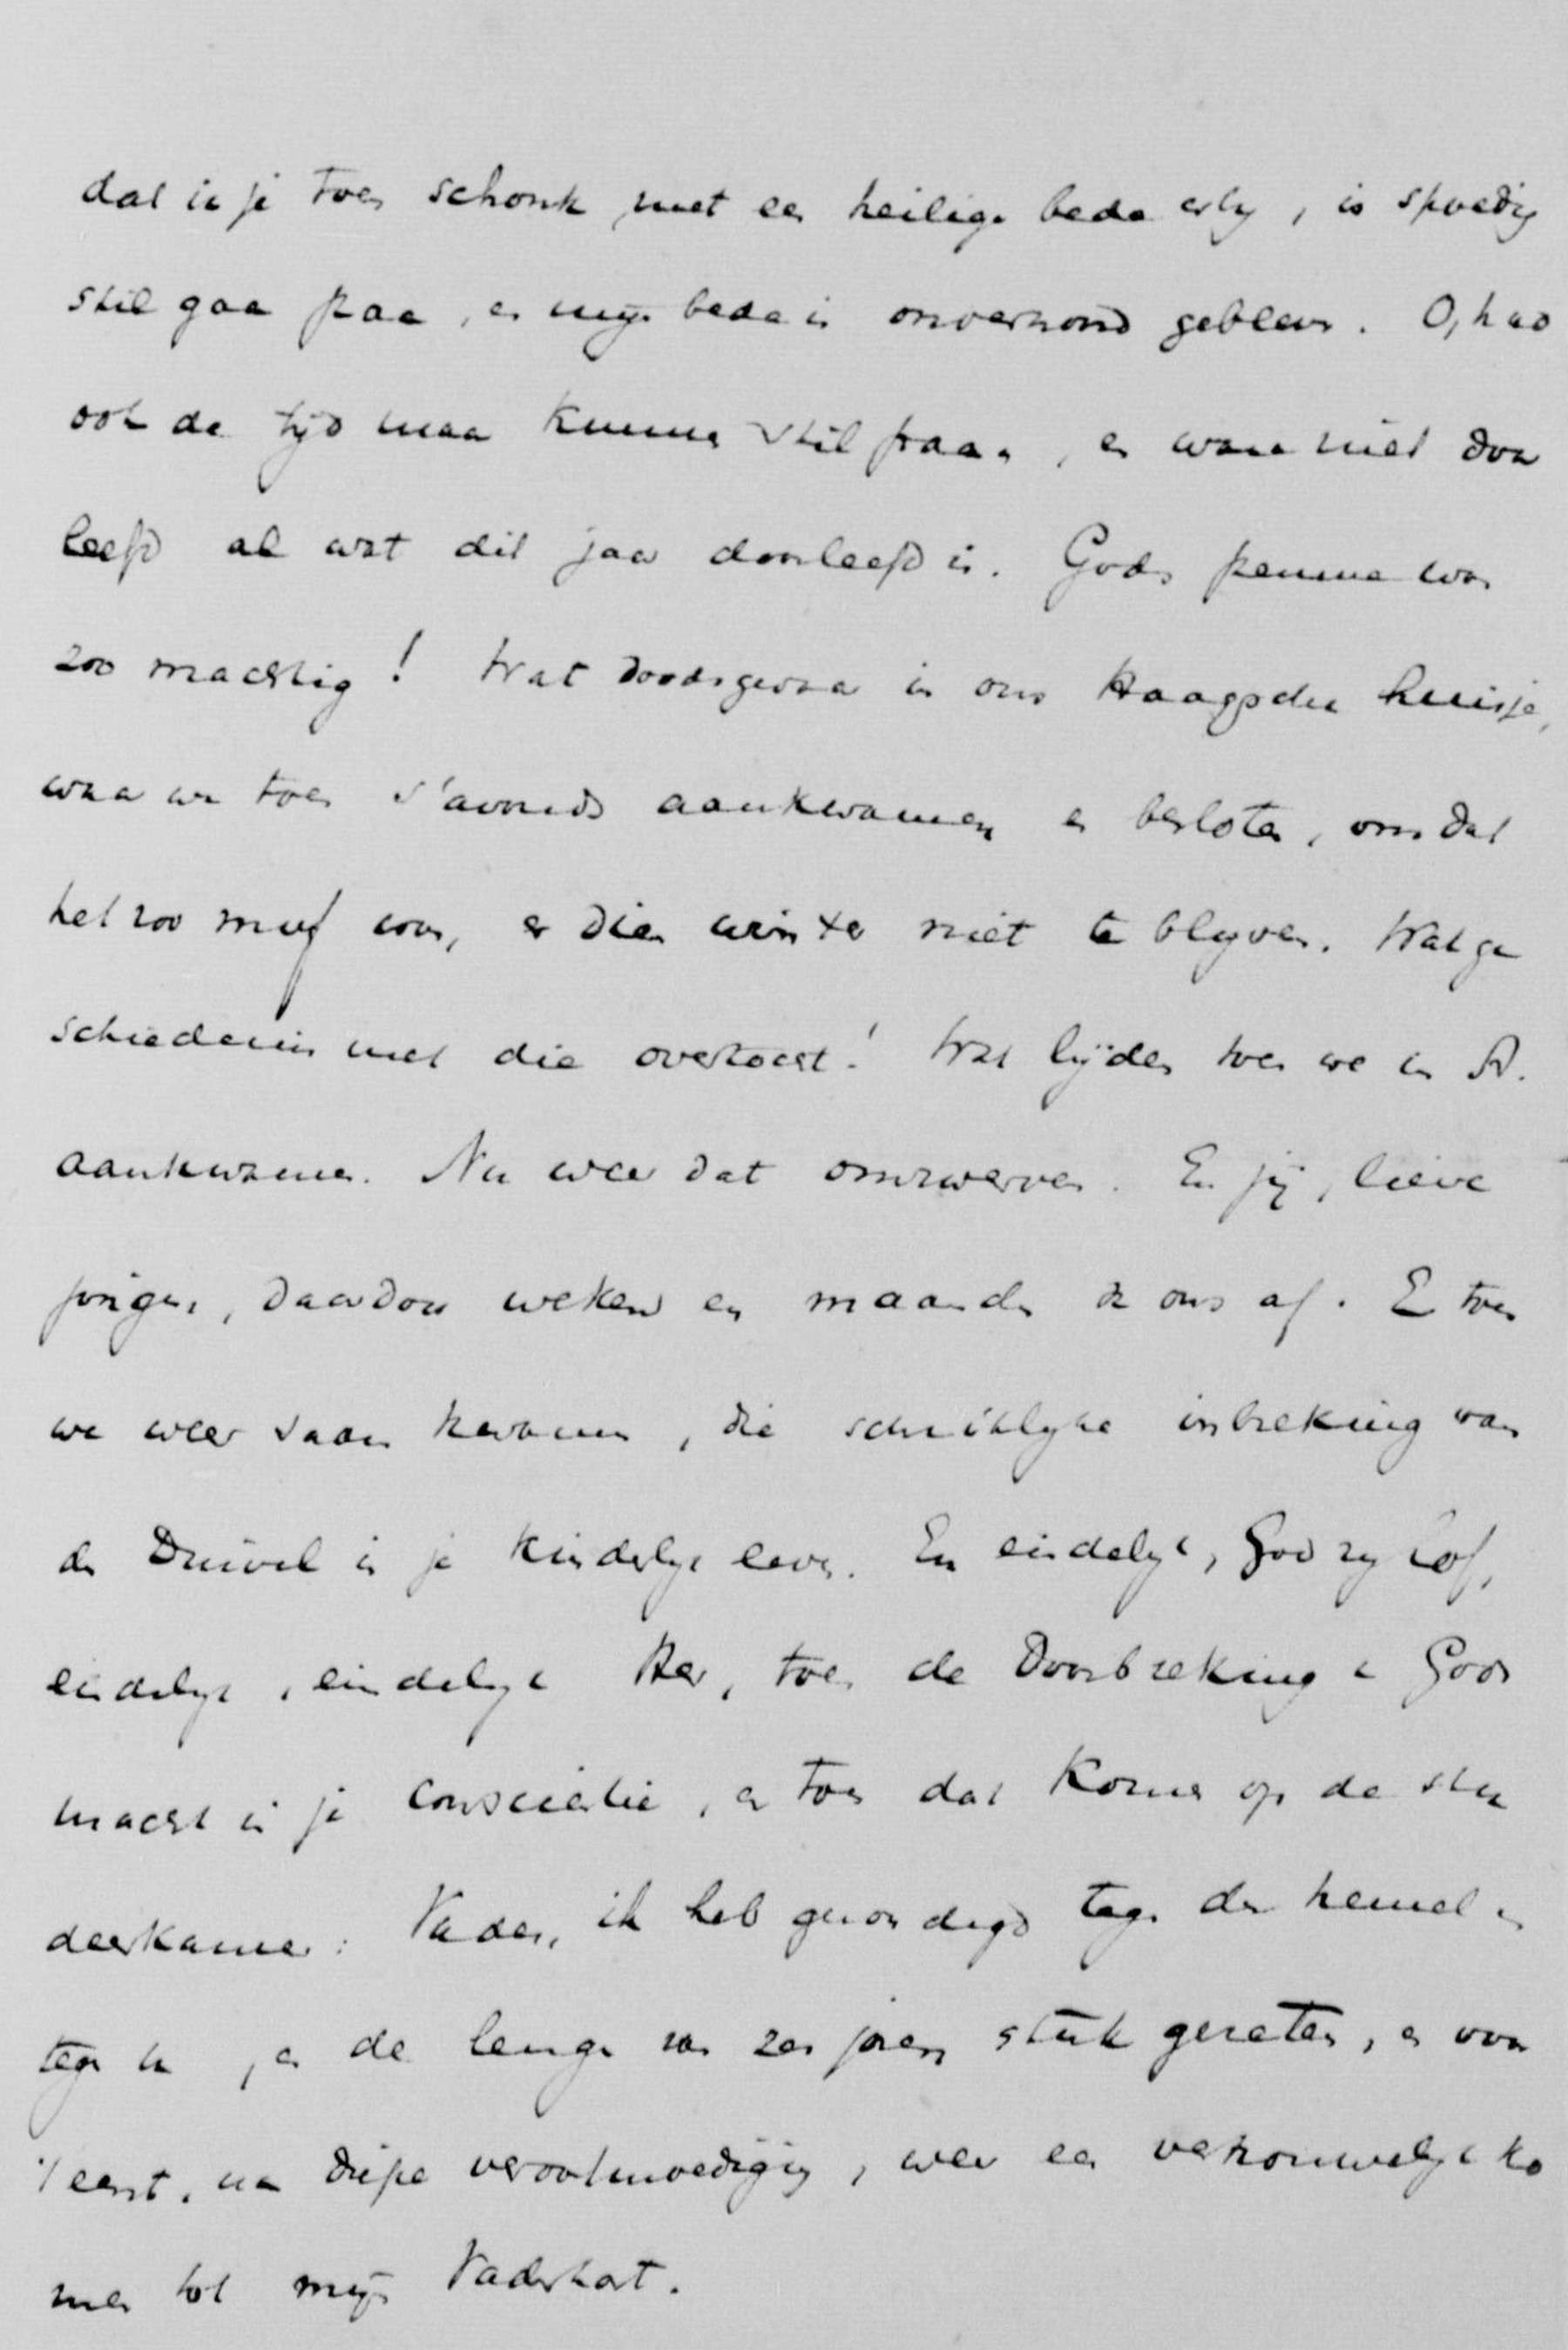 dat ik je toen schonk met een heilige bede erby, is spoedig
stil gaan staan, en myn bede is onverhoord gebleven. O, had
ook de tyd maar kunnen stilstaan, en ware niet door
leefd al wat dit jaar doorleefd is. Gods stemme was
zoo machtig! Wat doodsgevaar in ons Haagsche huisje,
waar we toen s'avonds aankwamen en besloten, omdat
het zoo muf was, er dien winter niet te blyven. Wat ge
schiedenis met die overtocht! Wat lijden toen we in A.
aankwamen. Nu weer dat omzwerven. En jij, lieve
jongen, daardoor weken en maanden van ons af. En toen
we weer saam kwamen, die schriklyke inbreking van
den Duivel in je kinderlyk leven. En eindelyk, God zy lof,
eindelyk, eindelyk Her, toen de Doorbreking van Gods
macht in je conscientie, en toen dat komen op de stu
deerkamer: Vader, ik heb gezondigd tegen den hemel en
tegen u, en de leugen van zes jaren stuk gereten, en voor
't eerst, na diepe verootmoediging, weer een vertrouwelyk ko
men tot myn Vaderhart.